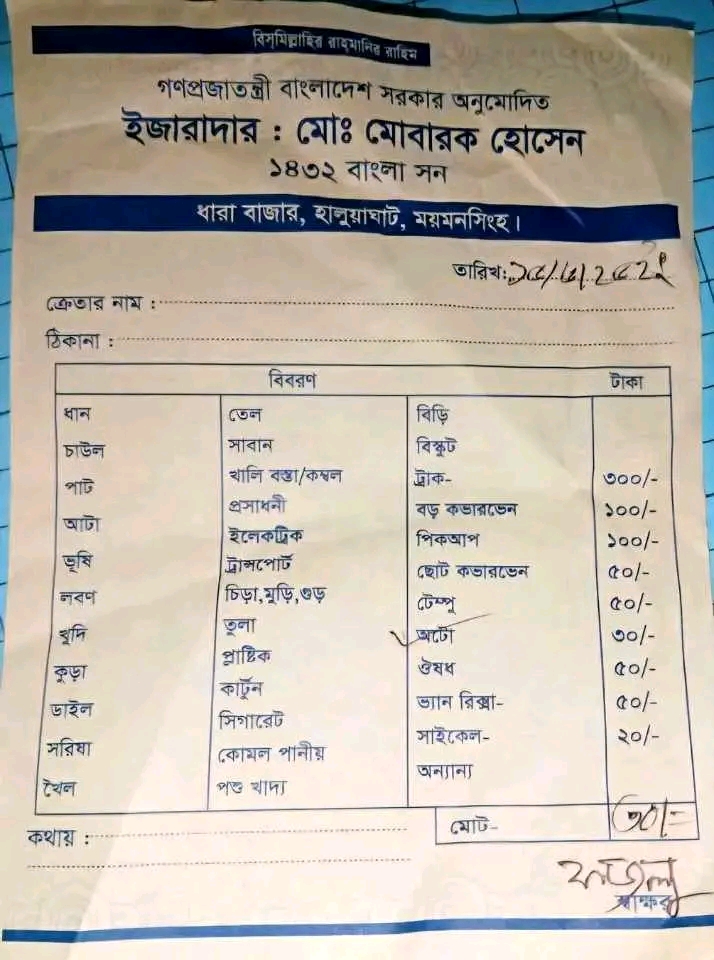 বিসমিল্লাহির রাহমানির রাহিম
গণপ্রজাতন্ত্রী বাংলাদেশ সরকার অনুমোদিত
ইজারাদার : মোঃ মোবারক হোসেন
১৪৩২ বাংলা সন
ধারা বাজার, হালুয়াঘাট, ময়মনসিংহ।
তারিখ:
ক্রেতার নাম :
ঠিকানা :
বিবরণ টাকা
ধান তেল বিড়ি
চাউল সাবান বিস্কুট
পাট খালি বস্তা/কম্বল ট্রাক- ৩০০/-
আটা প্রসাধনী বড় কভারভেন ১০০/-
ভূষি ইলেকট্রিক পিকআপ ১০০/-
লবণ ট্রান্সপোর্ট ছোট কভারভেন ৫০/-
খুদি চিড়া,মুড়ি,গুড় টেম্পু ৫০/-
কুড়া তুলা অটো ৩০/-
ডাইল প্লাষ্টিক ঔষধ ৫০/-
সরিষা কার্টুন ভ্যান রিক্সা- ৫০/-
খৈল সিগারেট সাইকেল- ২০/-
কোমল পানীয় অন্যান্য
পশু খাদ্য
কথায় : মোট- ৩০/=
ফজলু
স্বাক্ষর